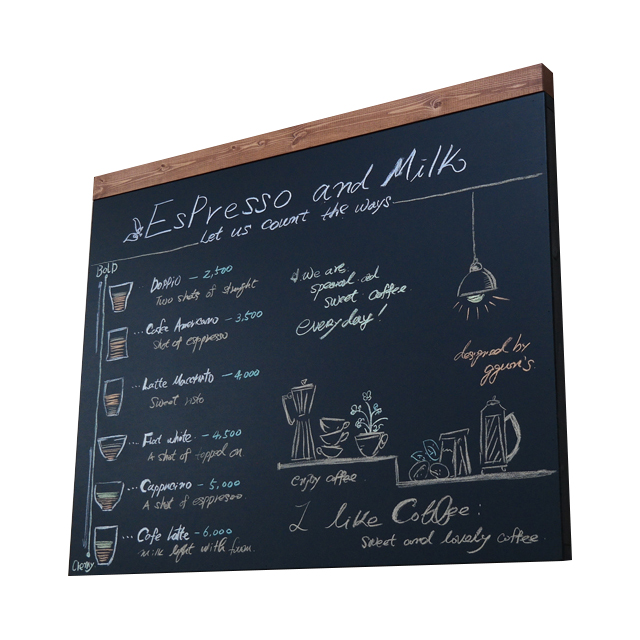 Espresso and Milk
Let us count the ways
BOLD
Doppio - 2,500
Two shots of straight
... Cafe Americano - 3,500
Shot of espresso
... Latte Macchiato - 4,000
Sweet
... Flat white - 4,500
A shot of topped on
... Cappucino - 5,000
A shot of espresso
... Cafe Latte - 6,000
milk light with foam.
we are
sweet coffee
everyday!
designed by
enjoy coffee
I like Coffee:
sweet and lovely coffee.